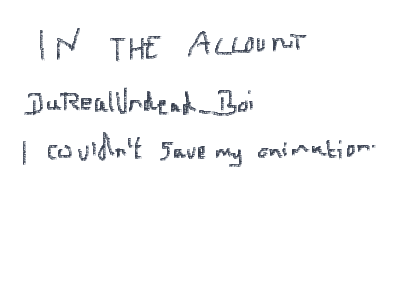 IN THE ACCOUNT
DaRealUndead_Boi
I couldn't save my animation.